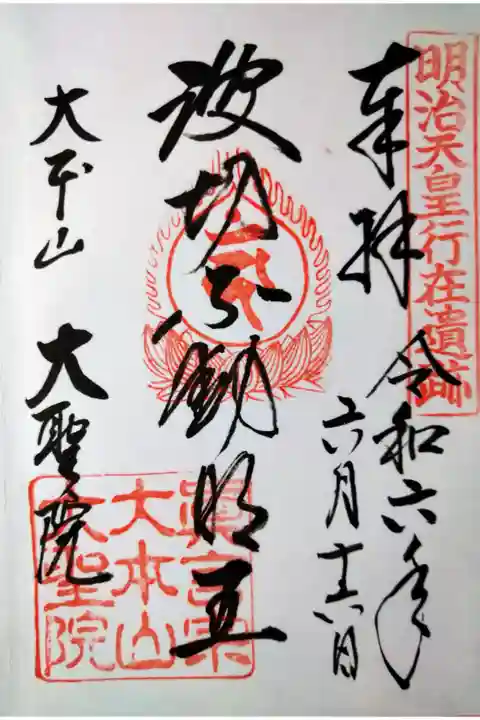 明治天皇行在遺跡
奉拝
令和六年
六月十六日
波切不動明王
大本山
大聖院
眞言宗
大本山
大聖院